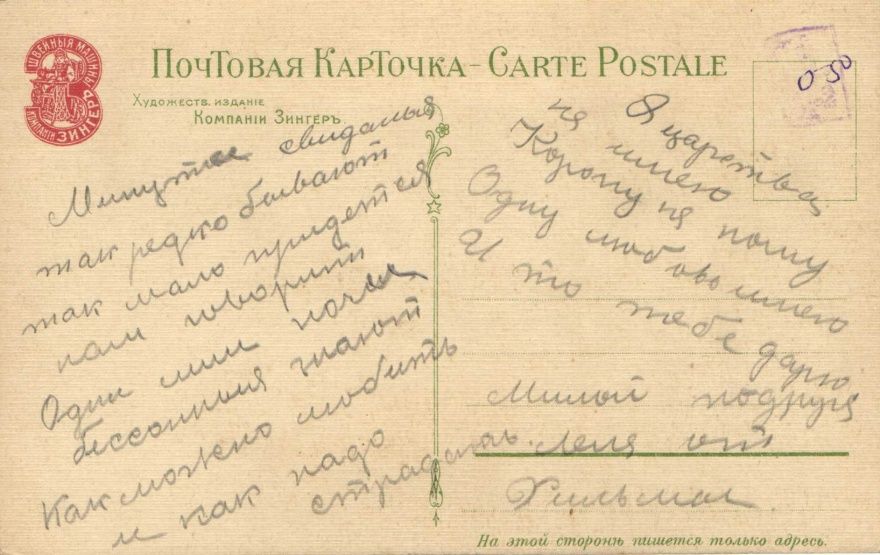 ШВЕЙНЫЯ МАШИНЫ
КОМПАНІИ ЗИНГЕРЪ
ПОЧТОВАЯ КАРТОЧКА – CARTE POSTALE
ХУДОЖЕСТВ. ИЗДАНІЕ
КОМПАНІИ ЗИНГЕРЪ.
Минуты свиданья
так редко бывают
так мало придется
нам говорить
Одни мои ночи
бессонныя знают
Как можно любить
и как надо
страдать.
Я царства
не имею
Корону не ношу
Одну любовь имею
И то тебе дарю
Милой подруге
Леля от
Хильмы
На этой сторонѣ пишется только адресъ.
050